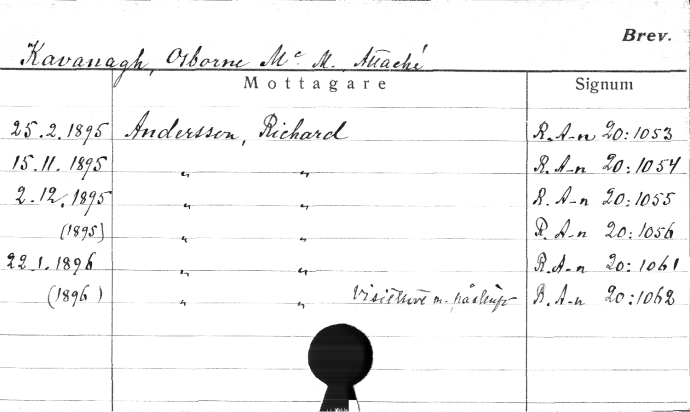 Brev.
Kavanagh, Osborne Mc M. Attaché
Mottagare Signum
25.2.1895 Andersson, Richard R. A-n 20:1053
15.11.1895 " " R. A-n 20:1054
2.12.1895 " " R. A-n 20:1055
(1895) " " R. A-n 20:1056
22.1.1896 " " R. A-n 20:1061
(1896) " " m. R. A-n 20:1062